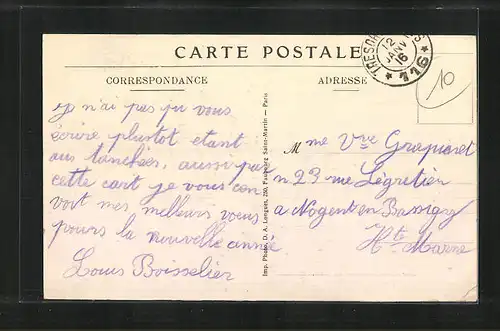 CARTE POSTALE
TRESOR
12
JANV
16
* 116 *
10
CORRESPONDANCE
ADRESSE
je n'ai pas pu vous
écrire plustot etant
aus tanchées, aussi par
cette cart je vous en
voit mes melleurs vous
pours la nouvelle année
Louis Boisselier
Imp. Photo. D. A. Longuet, 250, Faubourg Saint-Martin — Paris
Mme Vve
n 23 rue
a Nogent en Bassigny
Hte Marne